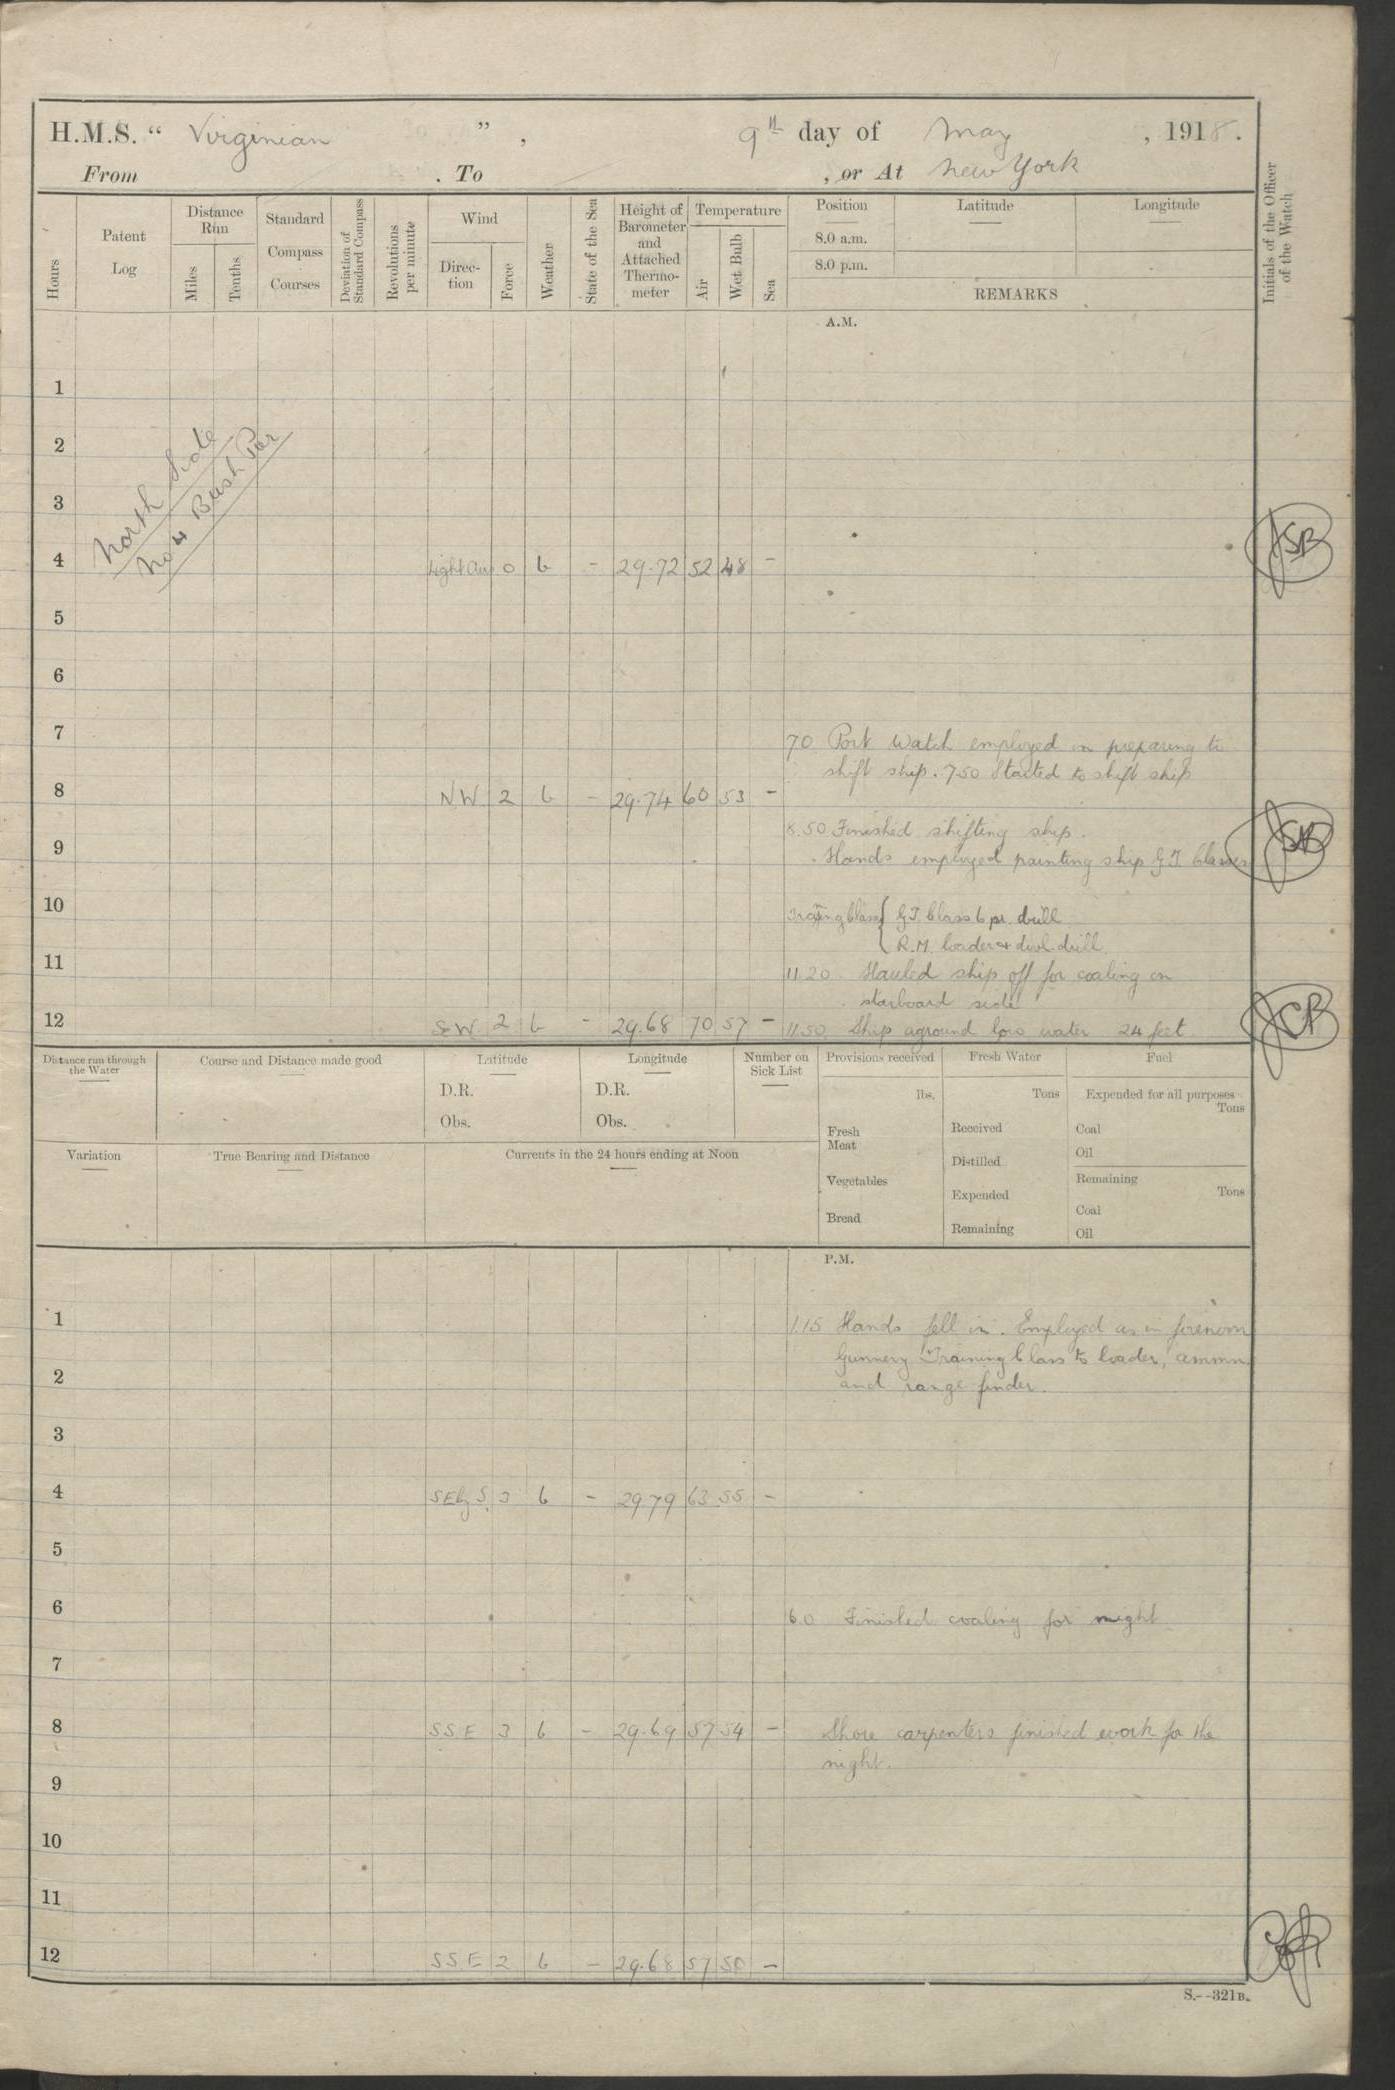 H.M.S. “ Virginian ” , 9th day of May , 1918.
From . To , or At New York
Hours
Patent Log
Distance Run
Miles
Tenths
Standard Compass Courses
Deviation of Standard Compass
Revolutions per minute
Wind
Direction
Force
Weather
State of the Sea
Height of Barometer and Attached Thermometer
Temperature
Air
Wet Bulb
Sea
Position Latitude Longitude
8.0 a.m.
8.0 p.m.
REMARKS
Initials of the Officer of the Watch
A.M.
1
2
North Side
No 4 Bush Pier
3
4 Light Air 0 b - 29.72 52 48 -
5
6
7
7.0 Port Watch employed in preparing to
shift ship. 7.50 Started to shift ship
8 NW 2 b - 29.74 60 53 -
8.50 Finished shifting ship.
9
Hands employed painting ship G.T. Classes
10
Training Class { G.T. Class 6 pr. drill
R.M. loader & divl. drill
11
11.20 Hauled ship off for coaling on
starboard side
12 SW 2 b - 29.68 70 57 - 11.50 Ship aground low water 24 feet
Distance run through the Water
Course and Distance made good
Latitude
D.R.
Obs.
Longitude
D.R.
Obs.
Number on Sick List
Provisions received
lbs.
Fresh Meat
Vegetables
Bread
Fresh Water
Tons
Received
Distilled
Expended
Remaining
Fuel
Expended for all purposes
Tons
Coal
Oil
Remaining
Tons
Coal
Oil
Variation
True Bearing and Distance
Currents in the 24 hours ending at Noon
P.M.
1
1.15 Hands fell in. Employed as in forenoon
Gunnery Training Class to loader, ammn.
2
and range finder.
3
4 SEbyS. 3 b - 29.79 63 55 -
5
6 6.0 Finished coaling for night
7
8 SSE 3 b - 29.69 57 54 - Shore carpenters finished work for the
night.
9
10
11
12 SSE 2 b - 29.68 57 50 -
S.--321B.